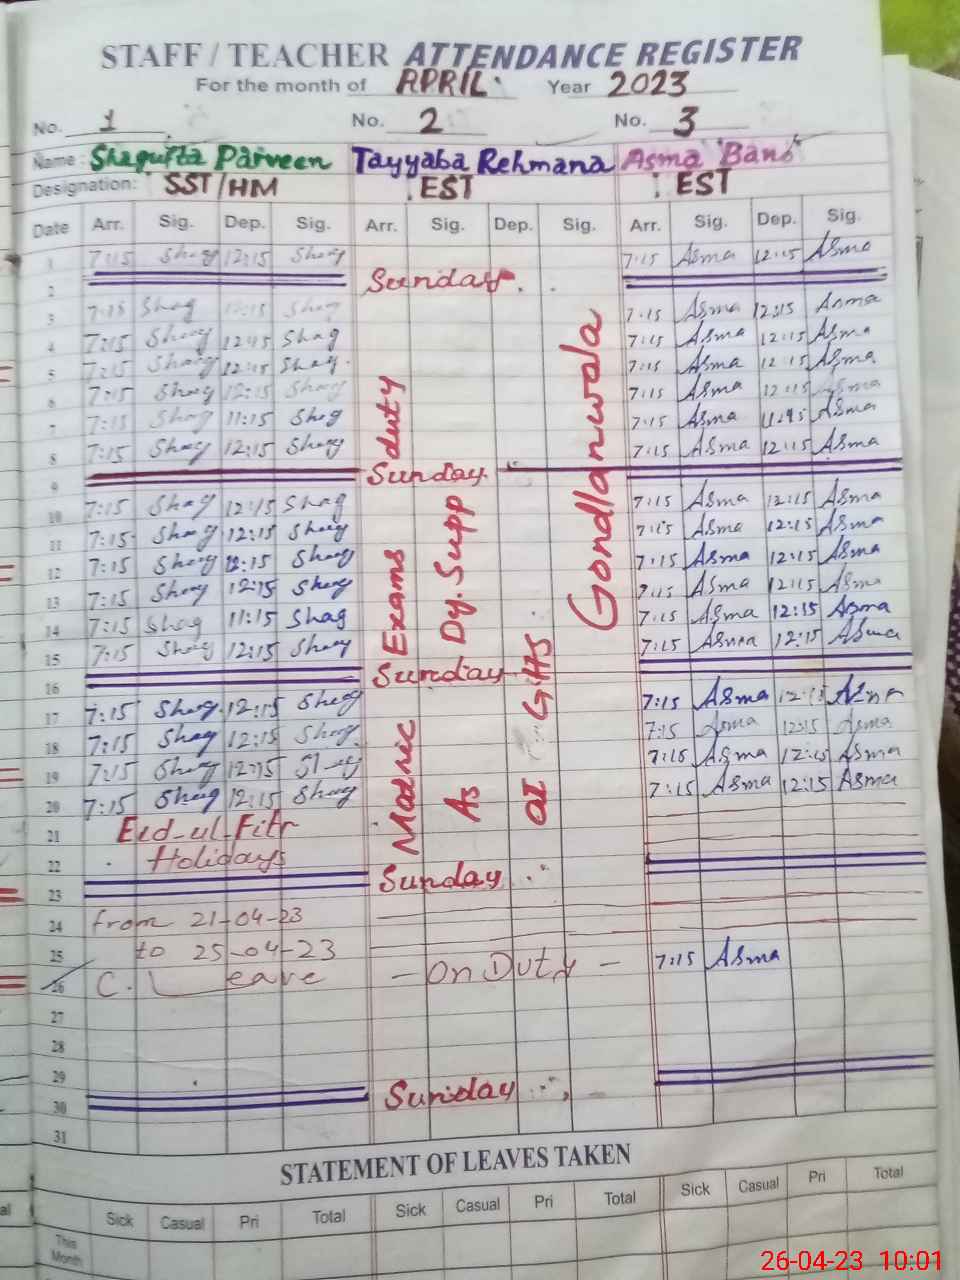 STAFF / TEACHER ATTENDANCE REGISTER
For the month of APRIL Year 2023
No. 1 No. 2 No. 3
Name: Shagufta Parveen Tayyaba Rehmana Asma Bano
Designation: SST/HM EST EST
Date Arr. Sig. Dep. Sig. Arr. Sig. Dep. Sig. Arr. Sig. Dep. Sig.
1 7:15 Shag 12:15 Shag 7:15 Asma 12:15 Asma
2 Sunday
3 7:15 Shag 12:15 Shag 7:15 Asma 12:15 Asma
4 7:15 Shag 12:15 Shag 7:15 Asma 12:15 Asma
5 7:15 Shag 12:15 Shag 7:15 Asma 12:15 Asma
6 7:15 Shag 12:15 Shag 7:15 Asma 12:15 Asma
7 7:15 Shag 11:15 Shag 7:15 Asma Asma
8 7:15 Shag 12:15 Shag 7:15 Asma 12:15 Asma
9 Sunday
10 7:15 Shag 12:15 Shag 7:15 Asma 12:15 Asma
11 7:15 Shag 12:15 Shag 7:15 Asma 12:15 Asma
12 7:15 Shag 12:15 Shag 7:15 Asma 12:15 Asma
13 7:15 Shag 12:15 Shag 7:15 Asma 12:15 Asma
14 7:15 Shag 11:15 Shag 7:15 Asma 12:15 Asma
15 7:15 Shag 12:15 Shag 7:15 Asma 12:15 Asma
16 Sunday
17 7:15 Shag 12:15 Shag 7:15 Asma 12:15 Asma
18 7:15 Shag 12:15 Shag 7:15 Asma 12:15 Asma
19 7:15 Shag 12:15 Shag 7:15 Asma 12:15 Asma
20 7:15 Shag 12:15 Shag 7:15 Asma 12:15 Asma
Matric Exams duty
As Dy. Supp
GHS
Gondlanwala
21 Eid-ul-Fitr
22 Holidays
23 Sunday
24 from 21-04-23
25 to 25-04-23
26 C. Leave - On Duty - 7:15 Asma
27
28
29
30 Sunday
31
STATEMENT OF LEAVES TAKEN
Sick Casual Pri Total Sick Casual Pri Total Sick Casual Pri Total
This Month
26-04-23 10:01